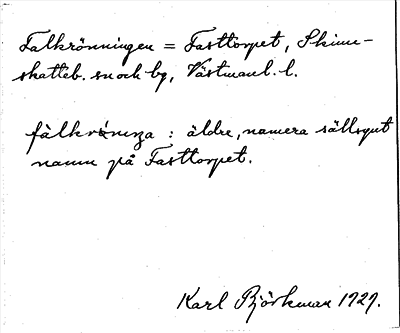 Falkrönningen = Fasttorpet, Skinn-
skatteb. sn och bg, Västmanl. l.
: äldre, numera sällsynt
namn på Fasttorpet.
Karl Björkman 1929.